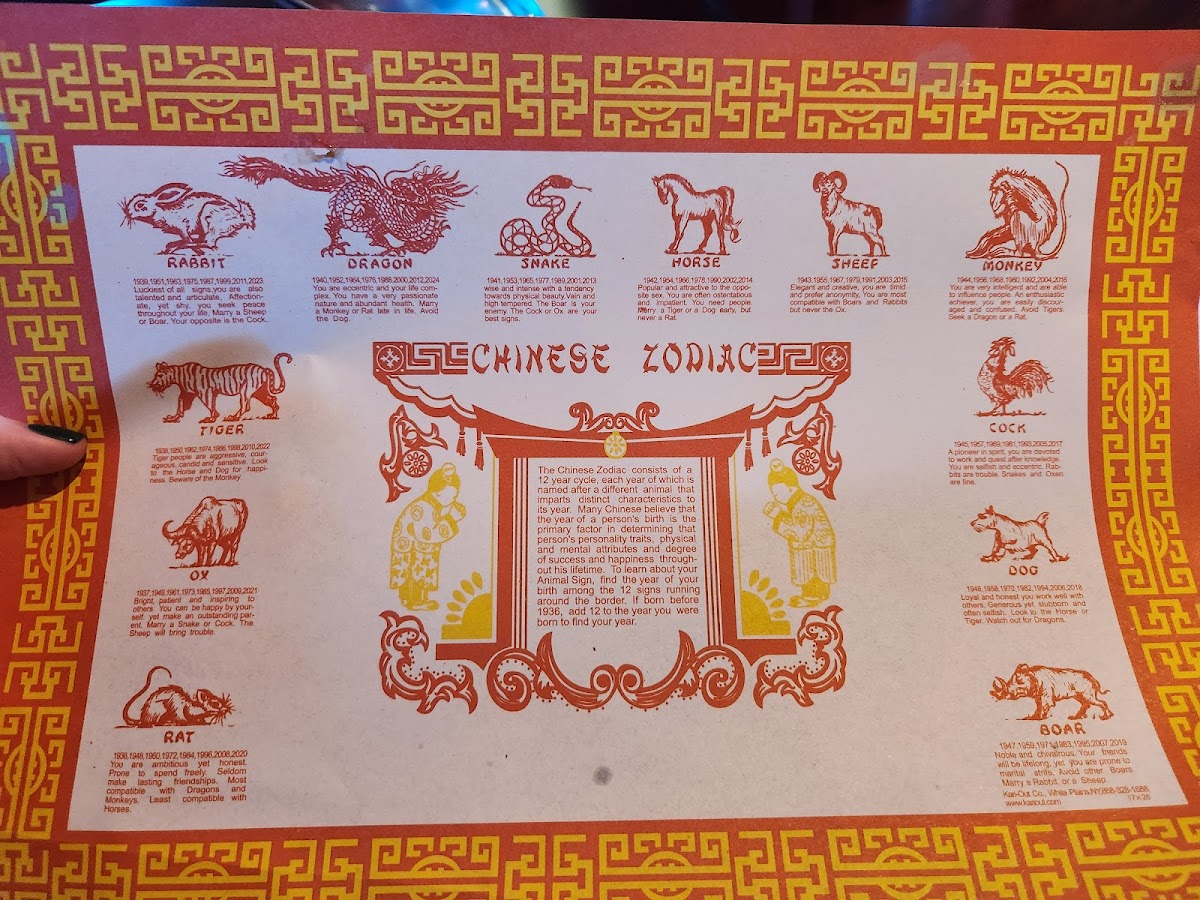 RABBIT
1939,1951,1963,1975,1987,1999,2011,2023
Luckiest of all signs,you are also
talented and articulate. Affection-
ate, yet shy, you seek peace
throughout your life. Marry a Sheep
or Boar. Your opposite is the Cock.
DRAGON
1940,1952,1964,1976,1988,2000,2012,2024
You are eccentric and your life com-
plex. You have a very passionate
nature and abundant health. Marry
a Monkey or Rat late in life. Avoid
the Dog.
SNAKE
1941,1953,1965,1977,1989,2001,2013
wise and intense with a tendency
towards physical beauty.Vain and
high tempered. The Boar is your
enemy. The Cock or Ox are your
best signs.
HORSE
1942,1954,1966,1978,1990,2002,2014
Popular and attractive to the oppo-
site sex. You are often ostentatious
and impatient. You need people.
Marry a Tiger or a Dog early, but
never a Rat.
SHEEP
1943,1955,1967,1979,1991,2003,2015
Elegant and creative, you are timid
and prefer anonymity. You are most
compatible with Boars and Rabbits
but never the Ox.
MONKEY
1944,1956,1968,1980,1992,2004,2016
You are very intelligent and are able
to influence people. An enthusiastic
achiever, you are easily discour-
aged and confused. Avoid Tigers.
Seek a Dragon or a Rat.
CHINESE ZODIAC
TIGER
1938,1950,1962,1974,1986,1998,2010,2022
Tiger people are aggressive, cour-
ageous, candid and sensitive. Look
to the Horse and Dog for happi-
ness. Beware of the Monkey.
COCK
1945,1957,1969,1981,1993,2005,2017
A pioneer in spirit, you are devoted
to work and quest after knowledge.
You are selfish and eccentric. Rab-
bits are trouble. Snakes and Oxen
are fine.
The Chinese Zodiac consists of a
12 year cycle, each year of which is
named after a different animal that
imparts distinct characteristics to
its year. Many Chinese believe that
the year of a person's birth is the
primary factor in determining that
person's personality traits, physical
and mental attributes and degree
of success and happiness through-
out his lifetime. To learn about your
Animal Sign, find the year of your
birth among the 12 signs running
around the border. If born before
1936, add 12 to the year you were
born to find your year.
OX
1937,1949,1961,1973,1985,1997,2009,2021
Bright, patient and inspiring to
others. You can be happy by your-
self, yet make an outstanding par-
ent. Marry a Snake or Cock. The
Sheep will bring trouble.
DOG
1946,1958,1970,1982,1994,2006,2018
Loyal and honest you work well with
others. Generous yet stubborn and
often selfish. Look to the Horse or
Tiger. Watch out for Dragons.
RAT
1936,1948,1960,1972,1984,1996,2008,2020
You are ambitious yet honest.
Prone to spend freely. Seldom
make lasting friendships. Most
compatible with Dragons and
Monkeys. Least compatible with
Horses.
BOAR
1947,1959,1971,1983,1995,2007,2019
Noble and chivalrous. Your friends
will be lifelong, yet you are prone to
marital strife. Avoid other Boars.
Marry a Rabbit or a Sheep.
Kari-Out Co., White Plains,NY,866-325-1688,
www.kariout.com